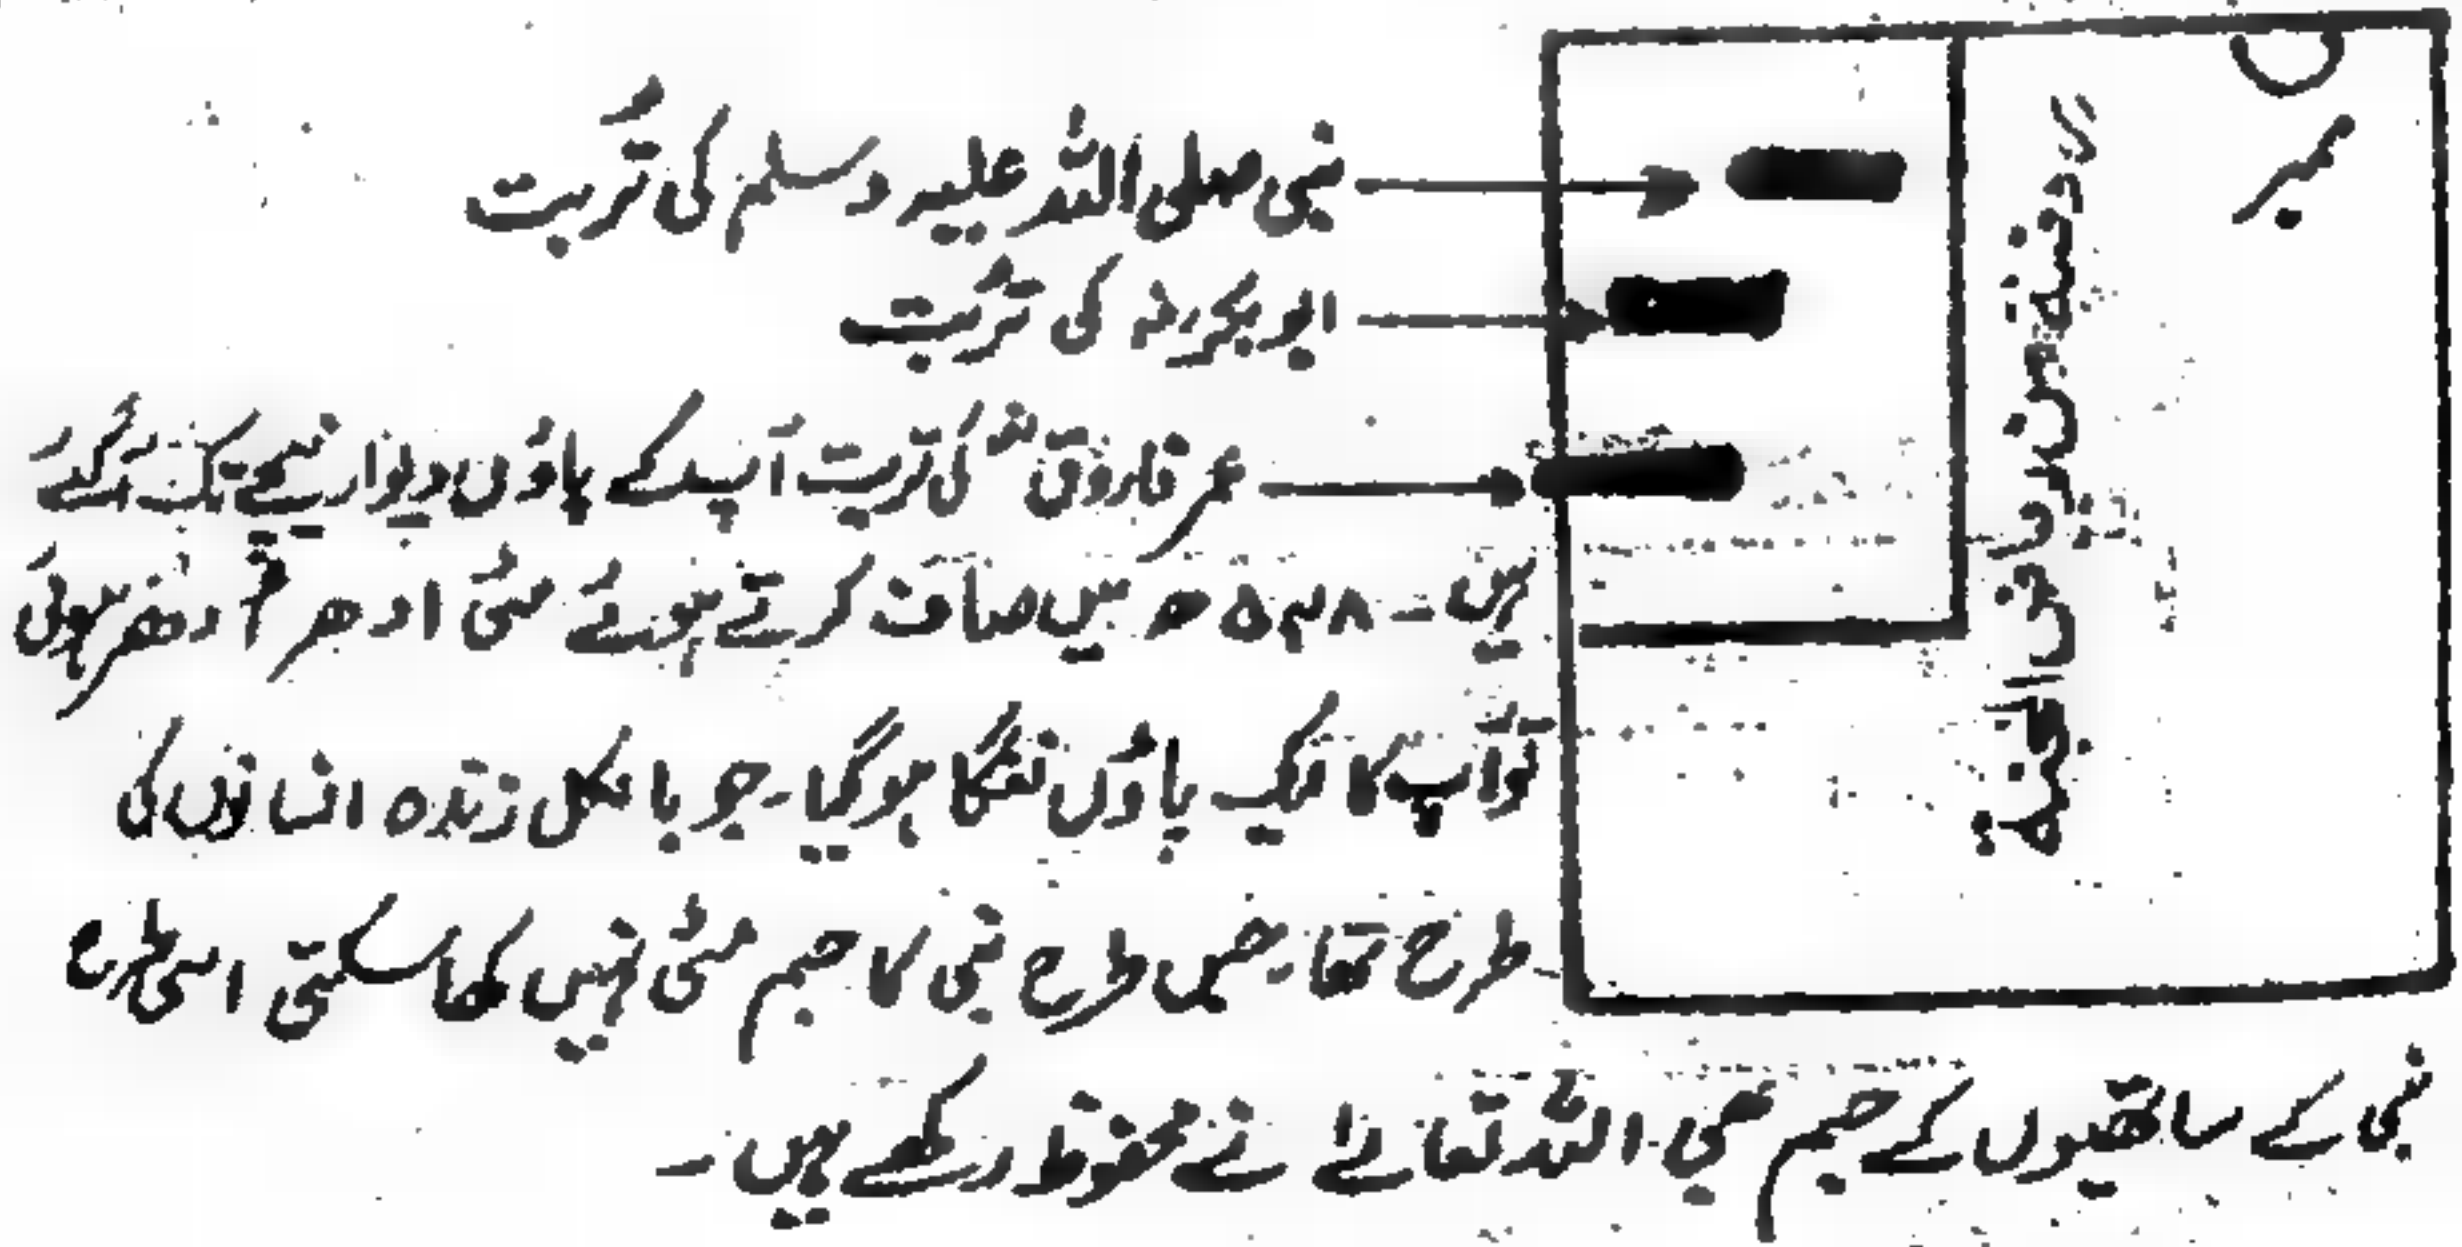 ممبر
روضۃ من ریاض الجنۃ
نبی صلی اللہ علیہ وسلم کی تُربت
ابوبکررضہ کی تُربت
عمر فاروقؓ کی تربت آپ کے پاؤں دیوار نیچے تک آگئے
ہیں ۔ ۵۴۸ ھ میں صاف کرتے ہوئے مٹی ادھر اُدھر ہوئی
تو آپ کا ایک پاؤں ننگا ہوگیا ۔ جو بالکل زندہ انسانوں کی
طرح تھا ۔ جس طرح نبی کا جسم مٹی نہیں کھا سکتی اسی طرح
نبی کے ساتھیوں کے جسم بھی اللہ تعالےٰ نے محفوظ رکھے ہیں ۔